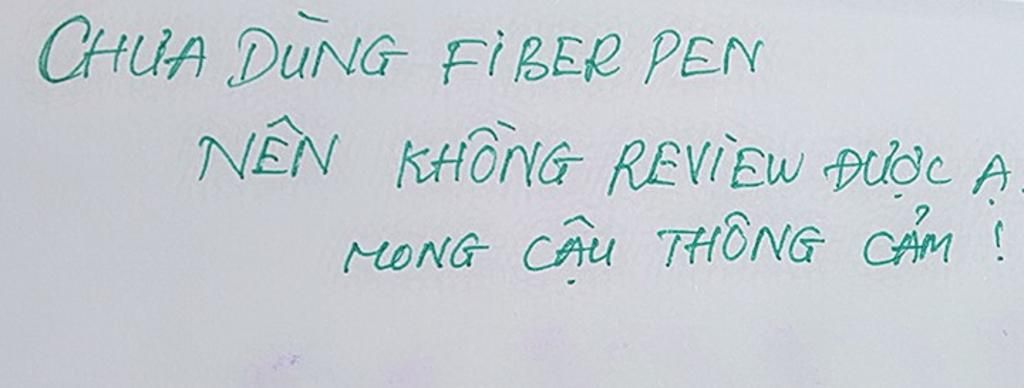 CHƯA DÙNG FIBER PEN
NÊN KHỒNG REVIEW ĐƯỢC Ạ.
MONG CẬU THÔNG CẢM !